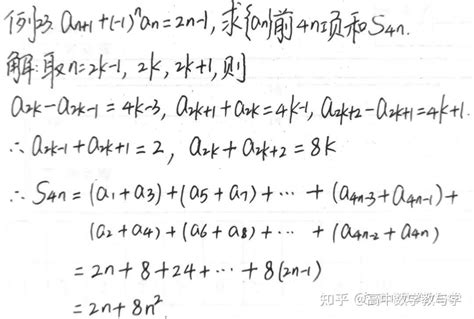 例23. aₙ₊₁+(-1)ⁿaₙ=2n-1, 求{aₙ}前4n项和S₄ₙ.
解: 取n=2k-1, 2k, 2k+1, 则
a₂ₖ-a₂ₖ₋₁=4k-3, a₂ₖ₊₁+a₂ₖ=4k-1, a₂ₖ₊₂-a₂ₖ₊₁=4k+1.
∴ a₂ₖ₋₁+a₂ₖ₊₁=2, a₂ₖ+a₂ₖ₊₂=8k
∴ S₄ₙ=(a₁+a₃)+(a₅+a₇)+⋯+(a₄ₙ₋₃+a₄ₙ₋₁)+
(a₂+a₄)+(a₆+a₈)+⋯+(a₄ₙ₋₂+a₄ₙ)
=2n+8+24+⋯+8(2n-1)
=2n+8n².
知乎 @高中数学教与学